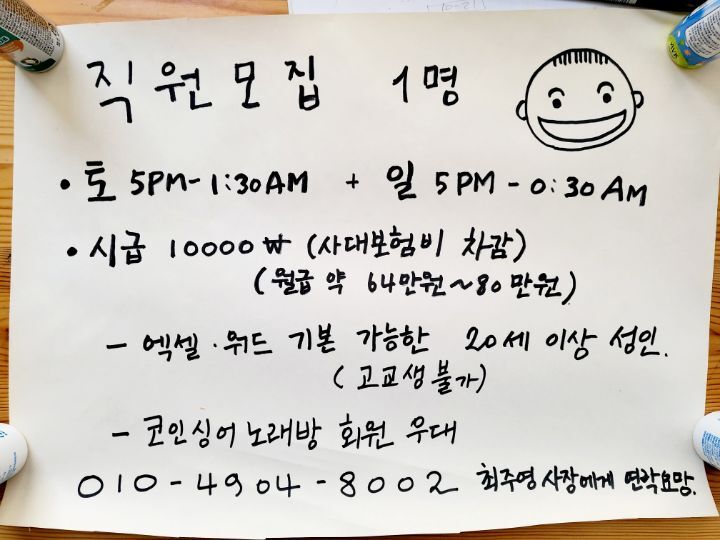 직원모집 1명
• 토 5PM-1:30AM + 일 5PM-0:30AM
• 시급 10000₩ (사대보험비 차감)
(월급 약 64만원~80만원)
- 엑셀·워드 기본 가능한 20세 이상 성인.
(고교생 불가)
- 코인싱어노래방 회원 우대
010-4904-8002 최주영 사장에게 연락요망.